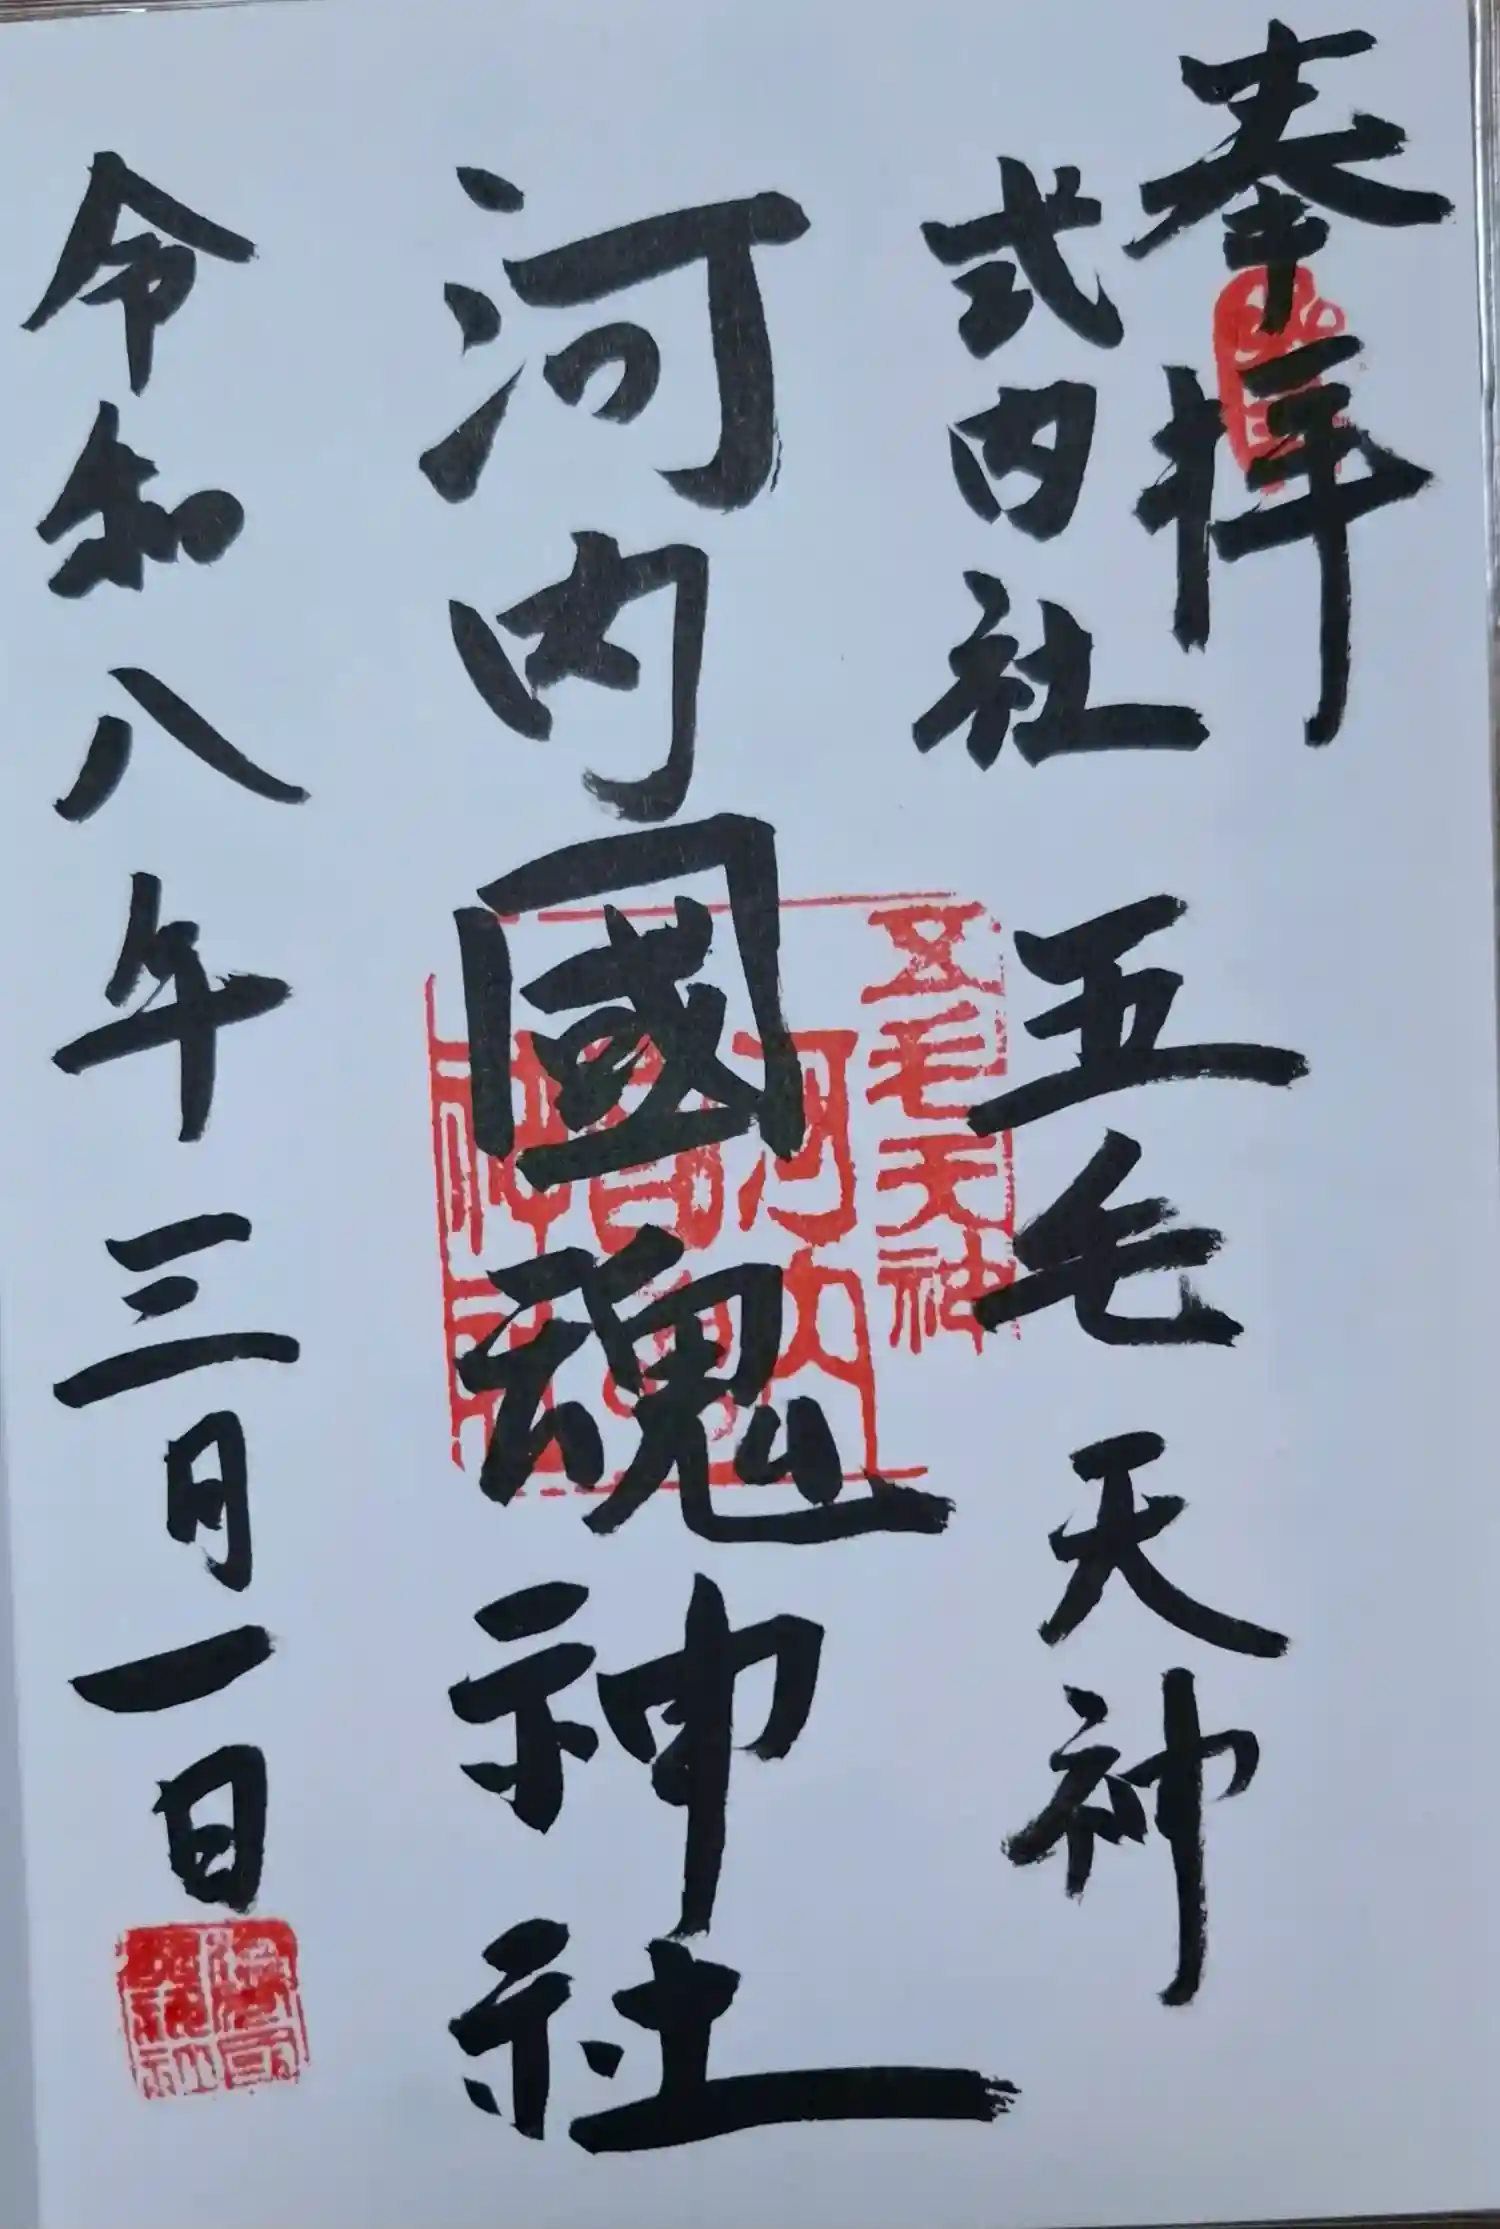 奉拝
式内社 五毛天神
河内國魂神社
五毛天神
河内國魂神社
令和八年三月一日